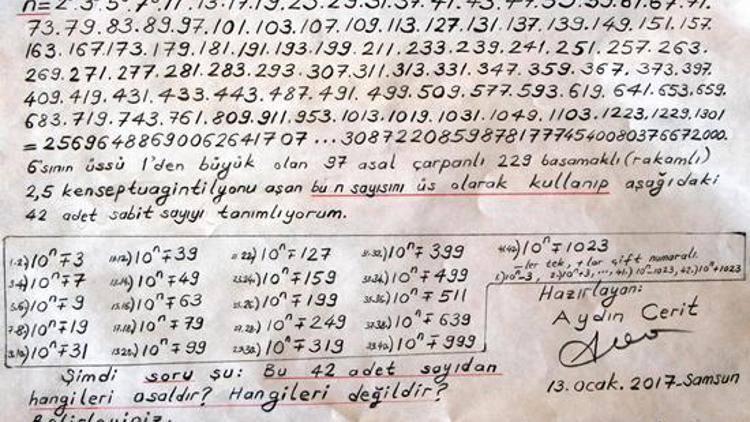 73.79.83.89.97.101.103.107.109.113.127.131.137.139.149.151.157.
163.167.173.179.181.191.193.199.211.233.239.241.251.257.263.
269.271.277.281.283.293.307.311.313.331.347.359.367.373.397.
409.419.431.433.443.487.491.499.509.577.593.619.641.653.659.
683.719.743.761.809.911.953.1013.1019.1031.1049.1103.1223.1229.1301
= 2569648869006264 1707 ... 30872208598781777454008037 6672000.
6'sının üssü 1'den büyük olan 97 asal çarpanlı 229 basamaklı (rakamlı)
2,5 kenseptuagintilyonu aşan bu n sayısını üs olarak kullanıp aşağıdaki
42 adet sabit sayıyı tanımlıyorum.
1-2.) 10ⁿ∓3 11.12.) 10ⁿ∓39 21.22.) 10ⁿ∓127 31.32.) 10ⁿ∓399 41.42.) 10ⁿ∓1023
-ler tek, +lar çift numaralı.
3.4.) 10ⁿ∓7 13.14.) 10ⁿ∓49 23.24.) 10ⁿ∓159 33.34.) 10ⁿ∓499 1.) 10ⁿ-3, 2.) 10ⁿ+3, ..., 41.) 10ⁿ-1023, 42.) 10ⁿ+1023
5.6.) 10ⁿ∓9 15.16.) 10ⁿ∓63 25.26.) 10ⁿ∓199 35.36.) 10ⁿ∓511
7-8.) 10ⁿ∓19 17.18.) 10ⁿ∓79 27.28.) 10ⁿ∓249 37.38.) 10ⁿ∓639
9.10.) 10ⁿ∓31 19.20.) 10ⁿ∓99 29.30.) 10ⁿ∓319 39.40.) 10ⁿ∓999
Hazırlayan:
Aydın Cerit
13. ocak. 2017-Samsun
Şimdi soru şu: Bu 42 adet sayıdan
hangileri asaldır? Hangileri değildir?
Belirleyiniz.